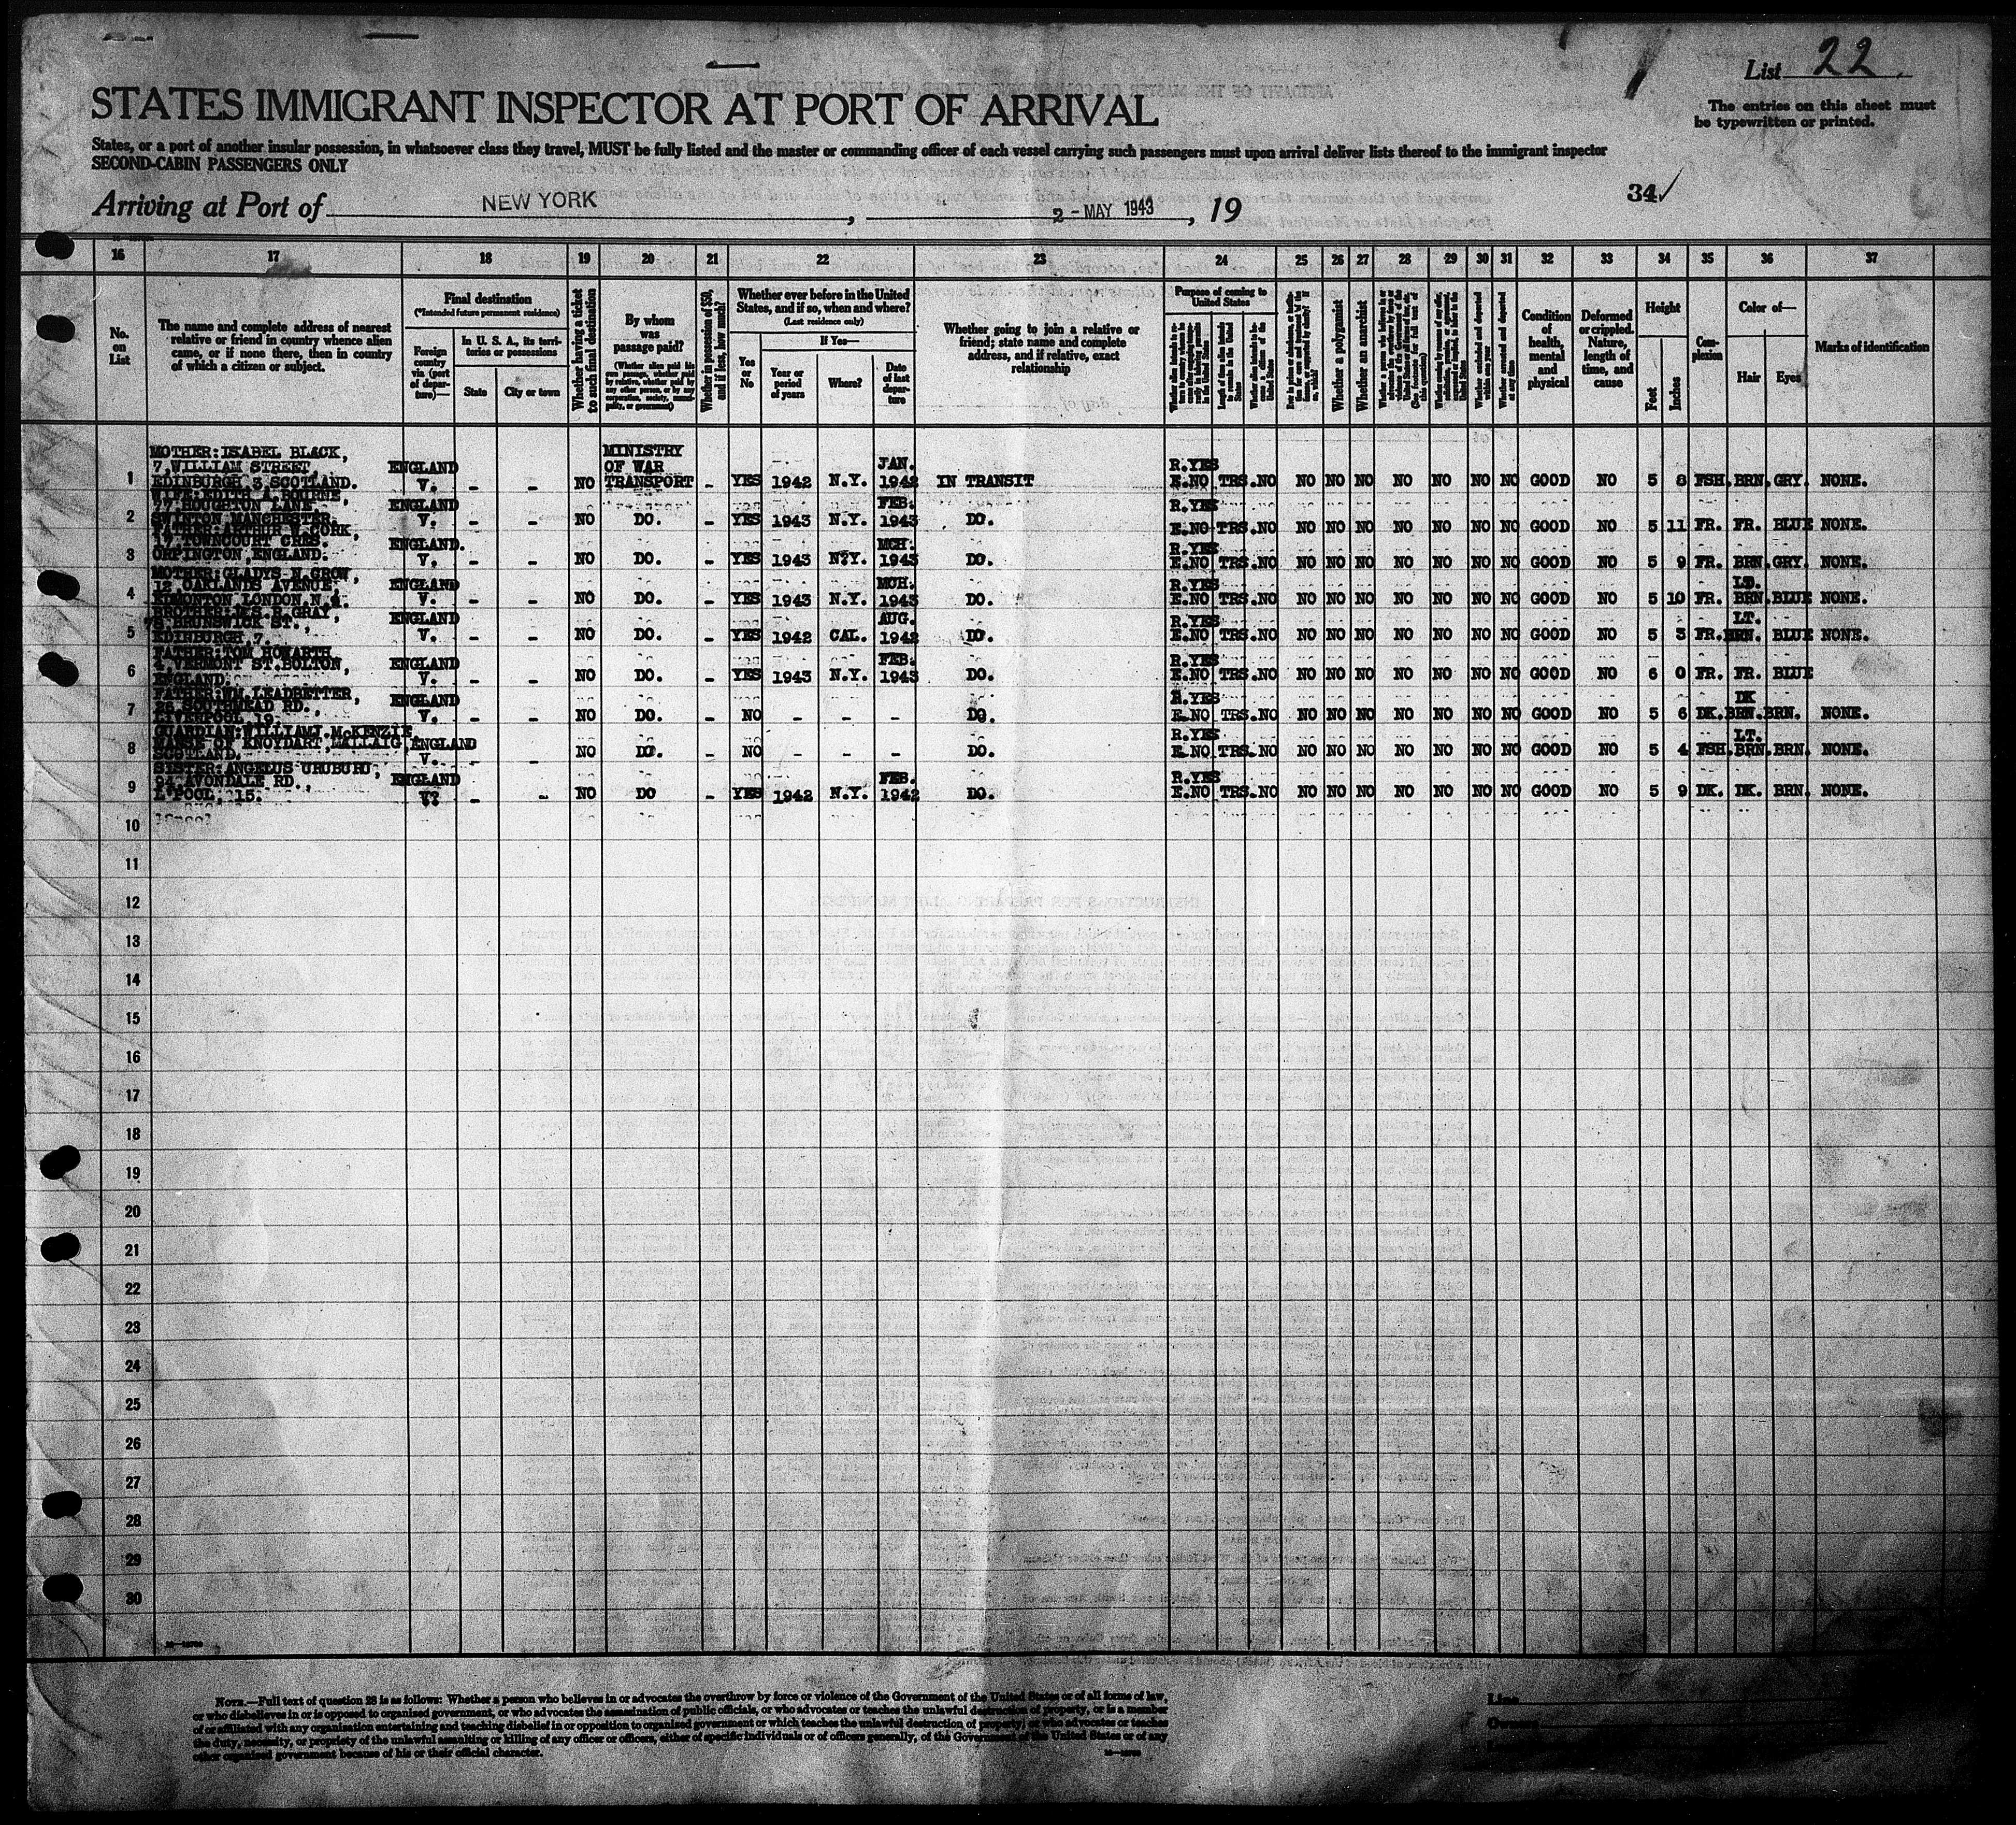 List 22.
The entries on this sheet must
be typewritten or printed.
STATES IMMIGRANT INSPECTOR AT PORT OF ARRIVAL
States, or a port of another insular possession, in whatsoever class they travel, MUST be fully listed and the master or commanding officer of each vessel carrying such passengers must upon arrival deliver lists thereof to the immigrant inspector
SECOND-CABIN PASSENGERS ONLY
34 ✓
Arriving at Port of NEW YORK, 2 - MAY 1943, 19
16 17 18 19 20 21 22 23 24 25 26 27 28 29 30 31 32 33 34 35 36 37
No. on List
The name and complete address of nearest relative or friend in country whence alien came, or if none there, then in country of which a citizen or subject.
Final destination
(*Intended future permanent residence)
Foreign country via (port of departure)—
In U. S. A., its territories or possessions
State
City or town
Whether having a ticket to such final destination
By whom was passage paid?
(Whether alien paid his own passage, whether paid by relative, whether paid by any other person, or by any corporation, society, municipality, or government)
Whether in possession of $50, and if less, how much?
Whether ever before in the United States, and if so, when and where?
(Last residence only)
Yes or No
If Yes—
Year or period of years
Where?
Date of last departure
Whether going to join a relative or friend; state name and complete address, and if relative, exact relationship
Purpose of coming to United States
Whether a polygamist
Whether an anarchist
Whether excluded and deported within one year
Whether arrested and deported at any time
Condition of health, mental and physical
Deformed or crippled. Nature, length of time, and cause
Height
Feet
Inches
Complexion
Color of—
Hair
Eyes
Marks of identification
MOTHER: ISABEL BLACK, MINISTRY
7, WILLIAM STREET, ENGLAND OF WAR JAN. R.YES
1 EDINBURGH 3 SCOTLAND. V. - - NO TRANSPORT - YES 1942 N.Y. 1942 IN TRANSIT E.NO TRS. NO NO NO NO NO NO NO NO GOOD NO 5 8 FSH. BRN. GRY. NONE.
WIFE: EDITH A. BOURNE,
77 HOUGHTON LANE ENGLAND FEB. R.YES
2 SWINTON MANCHESTER. V. - - NO DO. - YES 1943 N.Y. 1943 DO. E.NO TRS. NO NO NO NO NO NO NO NO GOOD NO 5 11 FR. FR. BLUE NONE.
FATHER: ARTHUR V. CORK,
17 TOWNCOURT CRES. ENGLAND. MCH. R.YES
3 ORPINGTON, ENGLAND. V. - - NO DO. - YES 1943 N?Y. 1943 DO. E.NO TRS. NO NO NO NO NO NO NO NO GOOD NO 5 9 FR. BRN. GRY. NONE.
MOTHER: GLADYS N. GROW,
12, OAKLANDS AVENUE, ENGLAND MCH. R.YES
4 EDMONTON LONDON N. V. - - NO DO. - YES 1943 N.Y. 1943 DO. E.NO TRS. NO NO NO NO NO NO NO NO GOOD NO 5 10 FR. BRN. BLUE NONE.
BROTHER: R. GRAY,
BRUNSWICK ST., ENGLAND AUG. R.YES LT.
5 EDINBURGH 7. V. - - NO DO. - YES 1942 CAL. 1942 DO. E.NO TRS. NO NO NO NO NO NO NO NO GOOD NO 5 3 FR. BRN. BLUE NONE.
FATHER: TOM HOWARTH
4, VERMONT ST. BOLTON, ENGLAND FEB. R.YES
6 ENGLAND. V. - - NO DO. - YES 1943 N.Y. 1943 DO. E.NO TRS. NO NO NO NO NO NO NO NO GOOD NO 6 0 FR. FR. BLUE
FATHER: WM. LEADBETTER,
26 SOUTHMEAD RD., ENGLAND R.YES DK
7 LIVERPOOL 19. V. - - NO DO. - NO - - - DO. E.NO TRS. NO NO NO NO NO NO NO NO GOOD NO 5 6 DK. BRN. BRN. NONE.
GUARDIAN: WILLIAM J. McKENZIE, R.YES LT.
MANSE OF KNOYDART, MALLAIG, ENGLAND
8 SCOTLAND. V. NO DO. - NO - - - DO. E.NO TRS. NO NO NO NO NO NO NO NO GOOD NO 5 4 FSH. BRN. BRN. NONE.
SISTER: ANGELUS URUBURU,
94, AVONDALE RD., ENGLAND FEB. R.YES
9 L'POOL, 15. V? - - NO DO - YES 1942 N.Y. 1942 DO. E.NO TRS. NO NO NO NO NO NO NO NO GOOD NO 5 9 DK. DK. BRN. NONE.
10
11
12
13
14
15
16
17
18
19
20
21
22
23
24
25
26
27
28
29
30
NOTE.—Full text of question 28 is as follows: Whether a person who believes in or advocates the overthrow by force or violence of the Government of the United States or of all forms of law,
or who disbelieves in or is opposed to organized government, or who advocates the assassination of public officials, or who advocates or teaches the unlawful destruction of property, or is a member
of or affiliated with any organization entertaining and teaching disbelief in or opposition to organized government or which teaches the unlawful destruction of property, or who advocates or teaches
the duty, necessity, or propriety of the unlawful assaulting or killing of any officer or officers, either of specific individuals or of officers generally, of the Government of the United States or of any
other organized government because of his or their official character.
Line
Owners